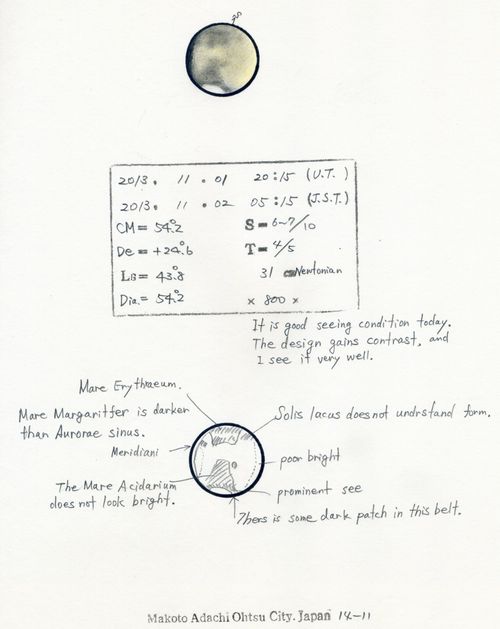 2013. 11 . 01 20:15 (U.T.)
2013. 11 . 02 05:15 (J.S.T.)
CM= 54.2° S= 6~7/10
De = +24.6° T= 4/5
Ls= 43.8° 31 cm Newtonian
Dia.= 54.2 × 800 ×
It is good seeing condition today.
The design gains contrast, and
I see it very well.
Mare Erythraeum.
Mare Margaritfer is darker
than Aurorae sinus.
Solis lacus does not undrstand form.
Meridiani
poor bright
The Mare Acidarium
does not look bright.
prominent see
Thers is some dark patch in this belt.
Makoto Adachi Ohtsu City. Japan 14-11